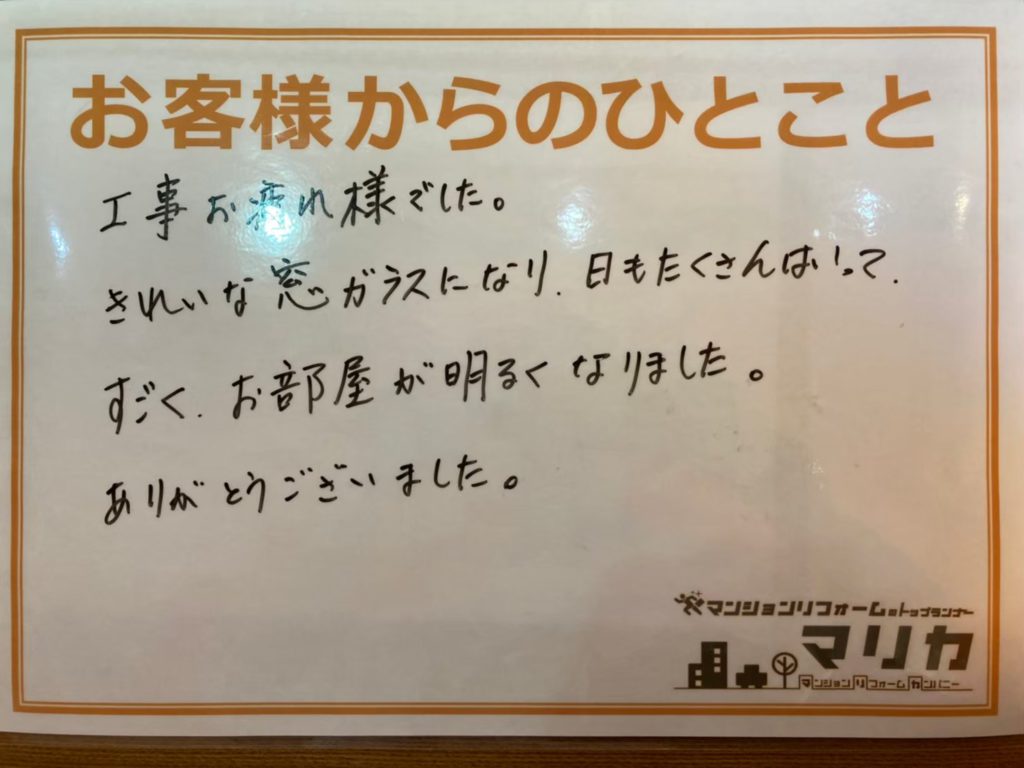 お客様からのひとこと
工事お疲れ様でした。
きれいな窓ガラスになり、日もたくさんはいって、
すごく、お部屋が明るくなりました。
ありがとうございました。
マンションリフォームのトップランナー
マリカ
マンションリフォームカンパニー